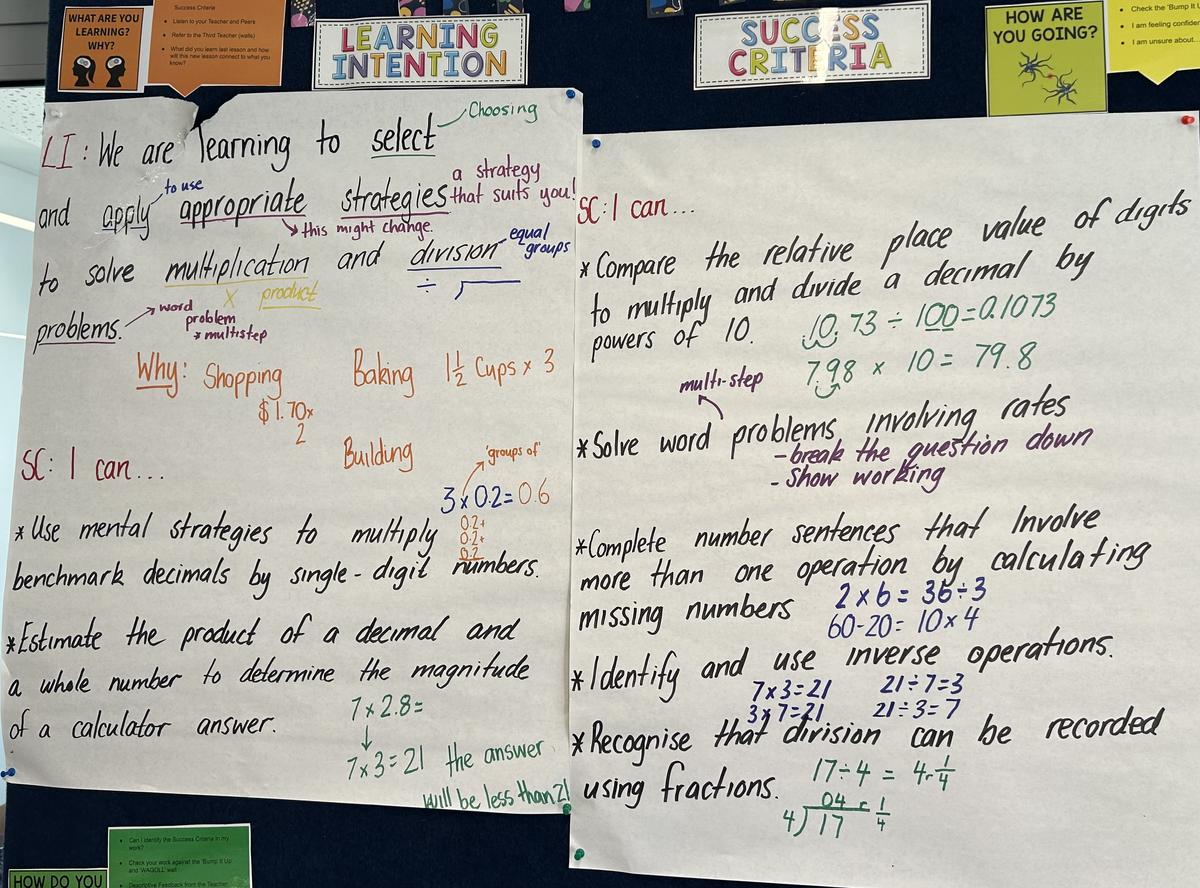 WHAT ARE YOU
LEARNING?
WHY?
Success Criteria
• Listen to your Teacher and Peers
• Refer to the Third Teacher (walls)
• What did you learn last lesson and how
will this new lesson connect to what you
know?
LEARNING
INTENTION
SUCCESS
CRITERIA
HOW ARE
YOU GOING?
• Check the 'Bump It
• I am feeling
• I am unsure about...
LI: We are learning to select
Choosing
and apply appropriate strategies
to use
a strategy
that suits you!
this might change.
to solve multiplication and division
equal
groups
x product
÷
problems.
word
problem
* multistep
Why: Shopping
$1.70x
2
Baking 1 1/2 Cups x 3
Building
SC: I can...
'groups of'
3 x 0.2 = 0.6
0.2+
0.2+
0.2
* Use mental strategies to multiply
benchmark decimals by single-digit numbers.
* Estimate the product of a decimal and
a whole number to determine the magnitude
of a calculator answer.
7 x 2.8 =
↓
7 x 3 = 21 the answer
will be less than 21
SC: I can...
* Compare the relative place value of digits
to multiply and divide a decimal by
powers of 10.
10.73 ÷ 100 = 0.1073
7.98 x 10 = 79.8
multi-step
* Solve word problems involving rates
- break the question down
- Show working
* Complete number sentences that Involve
more than one operation by calculating
missing numbers
2 x 6 = 36 ÷ 3
60 - 20 = 10 x 4
* Identify and use inverse operations.
7 x 3 = 21 21 ÷ 7 = 3
3 x 7 = 21 21 ÷ 3 = 7
* Recognise that division can be recorded
using fractions.
17 ÷ 4 = 4r 1/4
04 r 1/4
4)17
• Can I identify the Success Criteria in my
work?
• Check your work against the 'Bump It Up'
and 'WAGOLL' wall
• Descriptive Feedback from the Teacher
HOW DO YOU